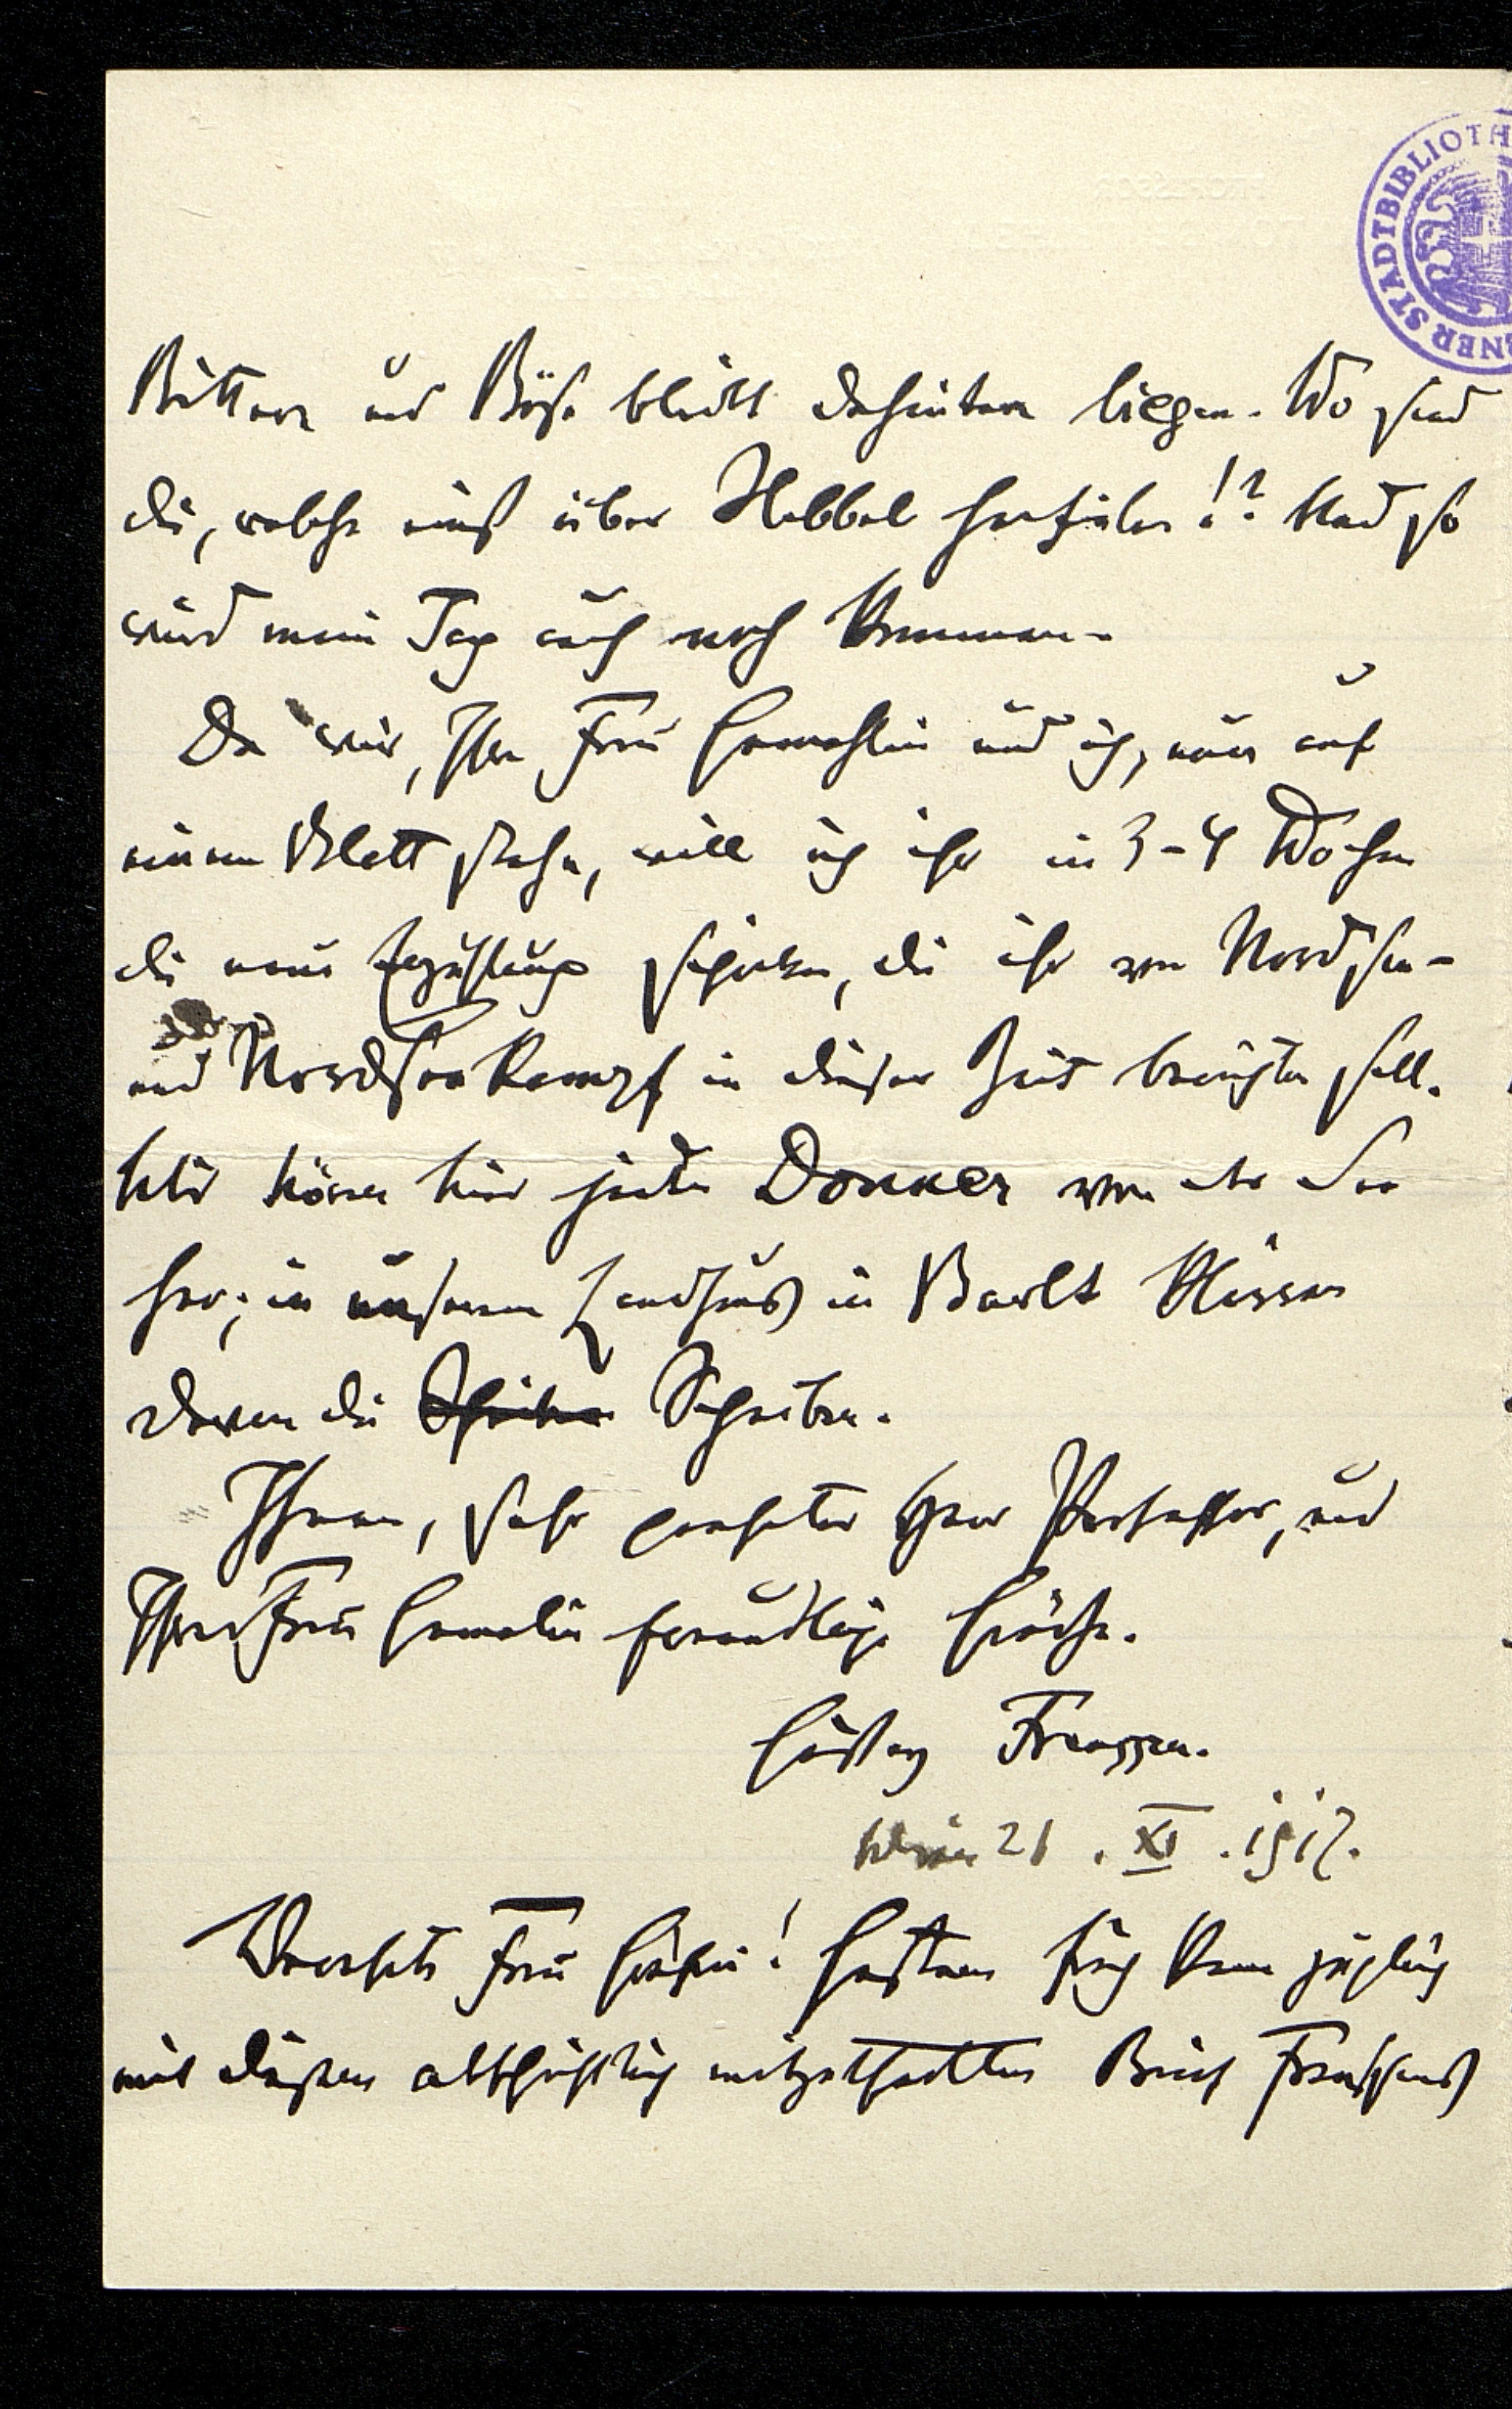 Bittere und Böse bleibt dahinten liegen. Wo sind
die, welche einst über Hebbel herfielen!? Und so
wird mein Tag auch noch kommen.
Da wir, Ihre Frau Gemahlin und ich, nun auf
einem Blatt stehn, will ich ihr in 3-4 Wochen
die neue Erzählung schicken, die ihr von Nordsee-
und Nordseekampf in dieser Zeit berichten soll.
Wir hören hier jeden Donner von der See
her; in unserem Landhaus in Barlt klirren
davon die Scheiben.
Ihnen, sehr geehrter Herr Professor, und
Ihrer Frau Gemalin freundliche Grüße.
Gustav Frenssen.
Wien 21. XI. 1917.
Verehrte Frau Gräfin! Gestern früh kam zugleich
mit diesem abschriftlich mitgetheilten Brief Frenssens
STADTBIBLIOTH